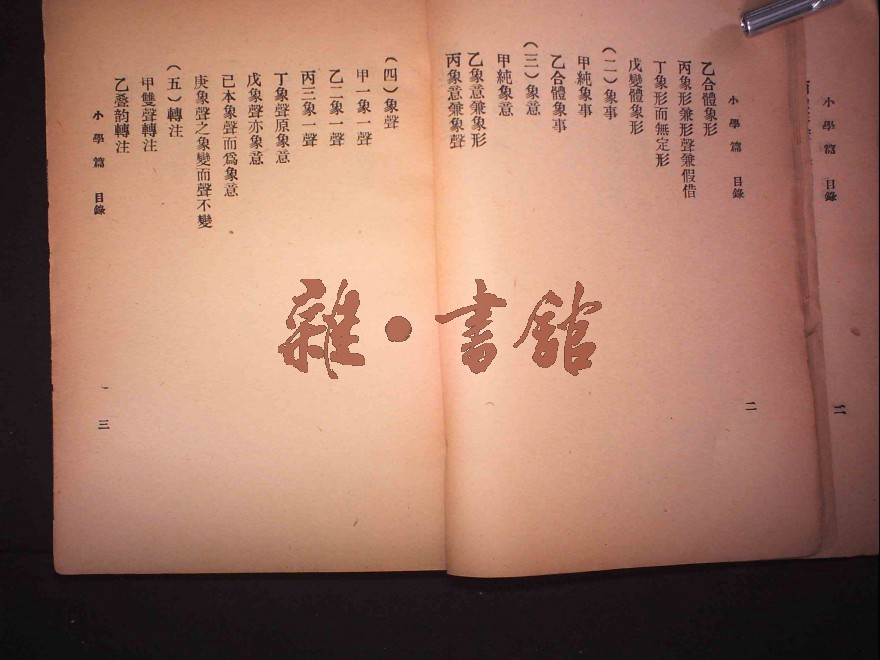 小學篇 目錄
小學篇 目錄
乙合體象形
丙象形兼形聲兼假借
丁象形而無定形
戊變體象形
（二）象事
甲純象事
乙合體象事
（三）象意
甲純象意
乙象意兼象形
丙象意兼象聲
二
（四）象聲
甲一象一聲
乙二象一聲
丙三象一聲
丁象聲原象意
戊象聲亦象意
己本象聲而爲象意
庚象聲之象變而聲不變
（五）轉注
甲雙聲轉注
乙疊韵轉注
小學篇 目錄
三
雜·書館